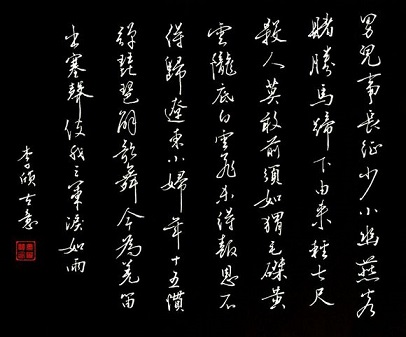 男兒事長征少小幽燕客
賭勝馬蹄下由來輕七尺
殺人莫敢前須如猬毛磔黃
雲隴底白雲飛未得報恩不
得歸遼東小婦年十五慣
彈琵琶解歌舞今為羌笛
出塞聲使我三軍淚如雨
李頎古意